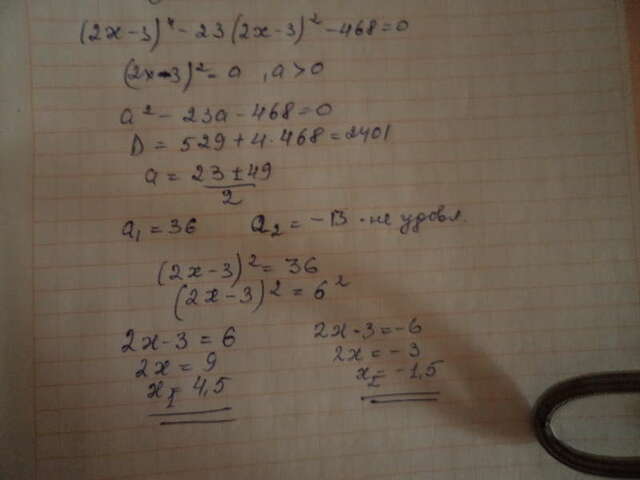 (2x-3)⁴ - 23(2x-3)² - 468 = 0
(2x-3)² = a , a > 0
a² - 23a - 468 = 0
D = 529 + 4·468 = 2401
a = (23 ± 49)/2
a₁ = 36 a₂ = -13 - не удовл.
(2x-3)² = 36
(2x-3)² = 6²
2x-3 = 6 2x-3 = -6
2x = 9 2x = -3
x₁ = 4,5 x₂ = -1,5